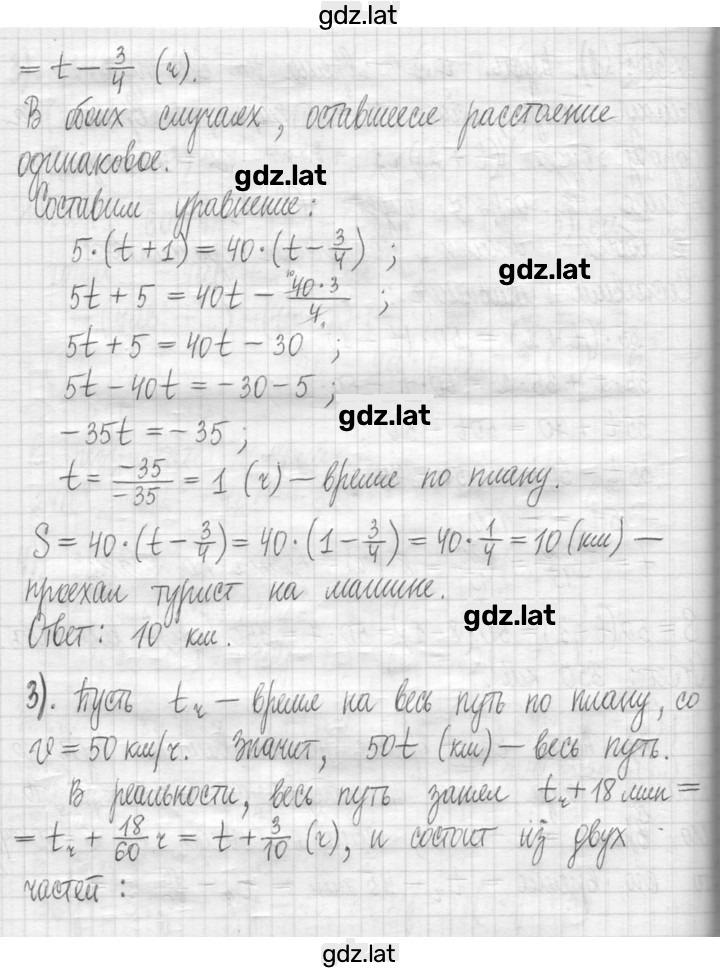 gdz.lat
= t − 3/4 (ч).
В обоих случаях, оставшееся расстояние
одинаковое.
gdz.lat
Составим уравнение:
5·(t+1) = 40·(t − 3/4) ;
gdz.lat
5t + 5 = 40t − 40·3/4 ;
5t + 5 = 40t − 30 ;
5t − 40t = −30 − 5 ;
gdz.lat
−35t = −35 ;
t = −35/−35 = 1 (ч) — время по плану.
S = 40·(t − 3/4) = 40·(1 − 3/4) = 40·1/4 = 10 (км) —
проехал турист на машине.
gdz.lat
Ответ: 10 км.
3). Пусть t ч — время на весь путь по плану, со
v = 50 км/ч. Значит, 50t (км) — весь путь.
В реальности, весь путь занял t ч + 18 мин =
= t ч + 18/60 ч = t + 3/10 (ч), и состоит из двух
частей :
gdz.lat